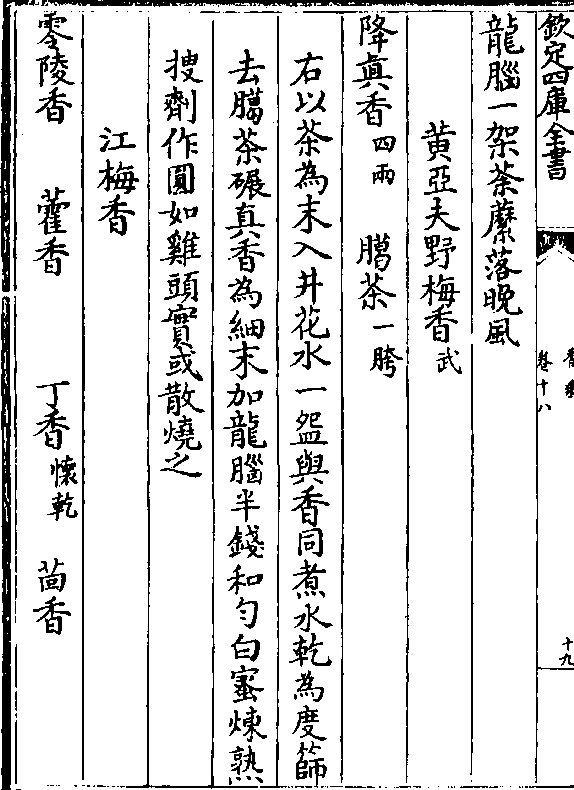 欽定四庫全書
香乘
卷十八
十九
龍腦一架荼䕷落晩風
黃亞夫野梅香武
降真香四兩 臈茶一胯
右以茶為末入井花水一盌與香同煮水乾為度篩
去臈茶碾真香為細末加龍腦半錢和勻白蜜煉熟
搜劑作圓如雞頭實或散燒之
江梅香
零陵香 藿香 丁香懷乾 茴香